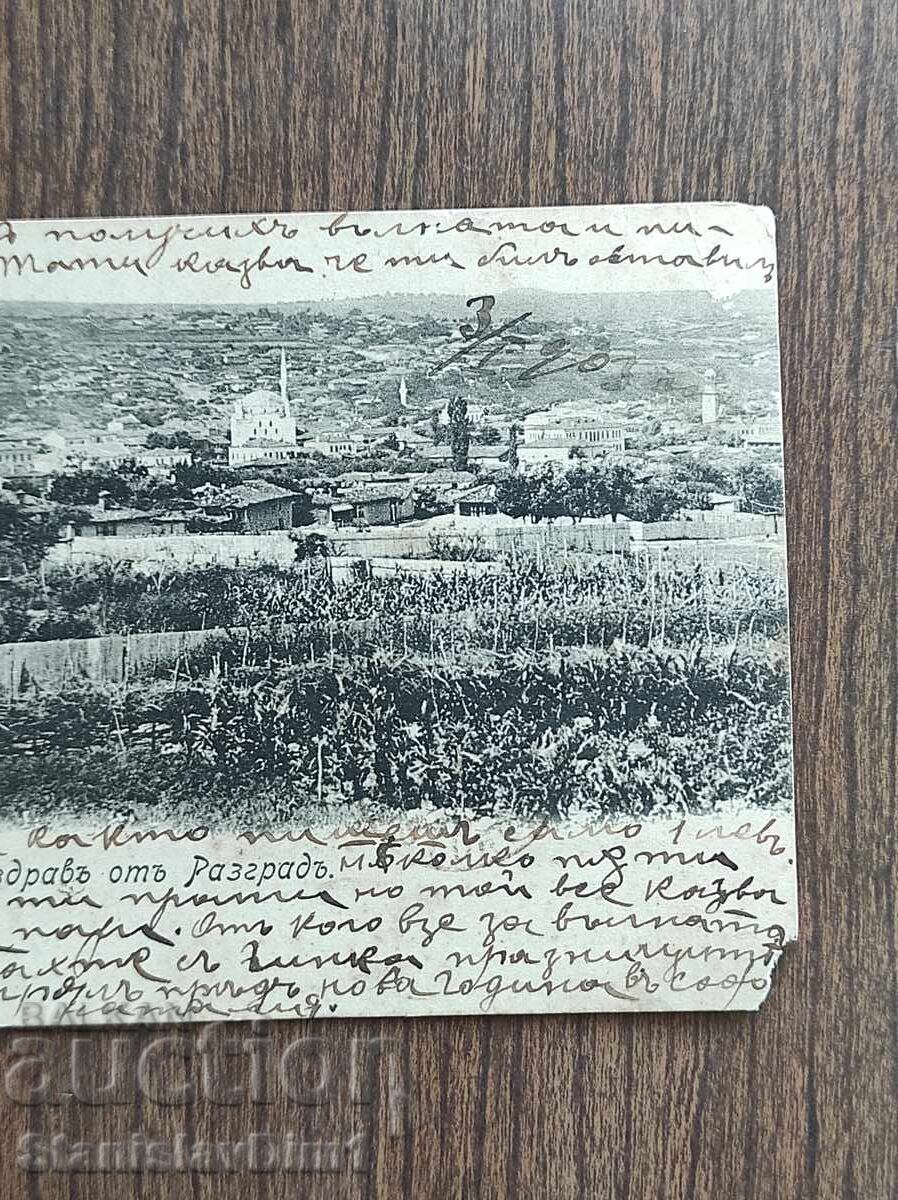 получихъ вълната и пи-
Тати казва, че ти билъ оставилъ
3/I 90
както пишешъ само 1 левъ.
здравъ отъ Разградъ. нѣколко пѫти
ти прати но той все казва
пари. Отъ кого взе за вълната
съ Ганка празницитѣ
прѣдъ нова година въ Софи
auction
StanislavDim1